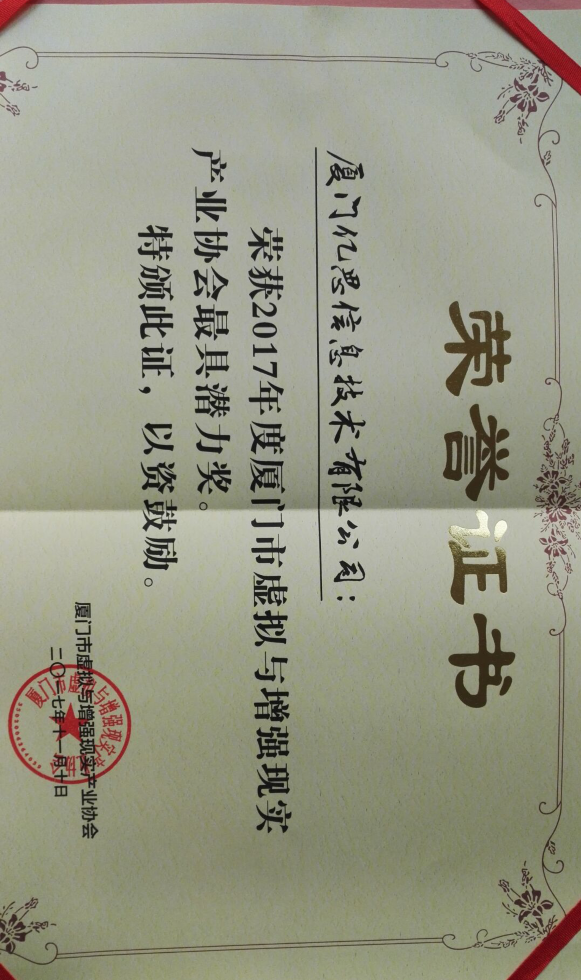 荣誉证书
厦门亿思信息技术有限公司：
荣获2017年度厦门市虚拟与增强现实
产业协会最具潜力奖。
特颁此证，以资鼓励。
厦门市虚拟与增强现实产业协会
二〇一七年十一月十日